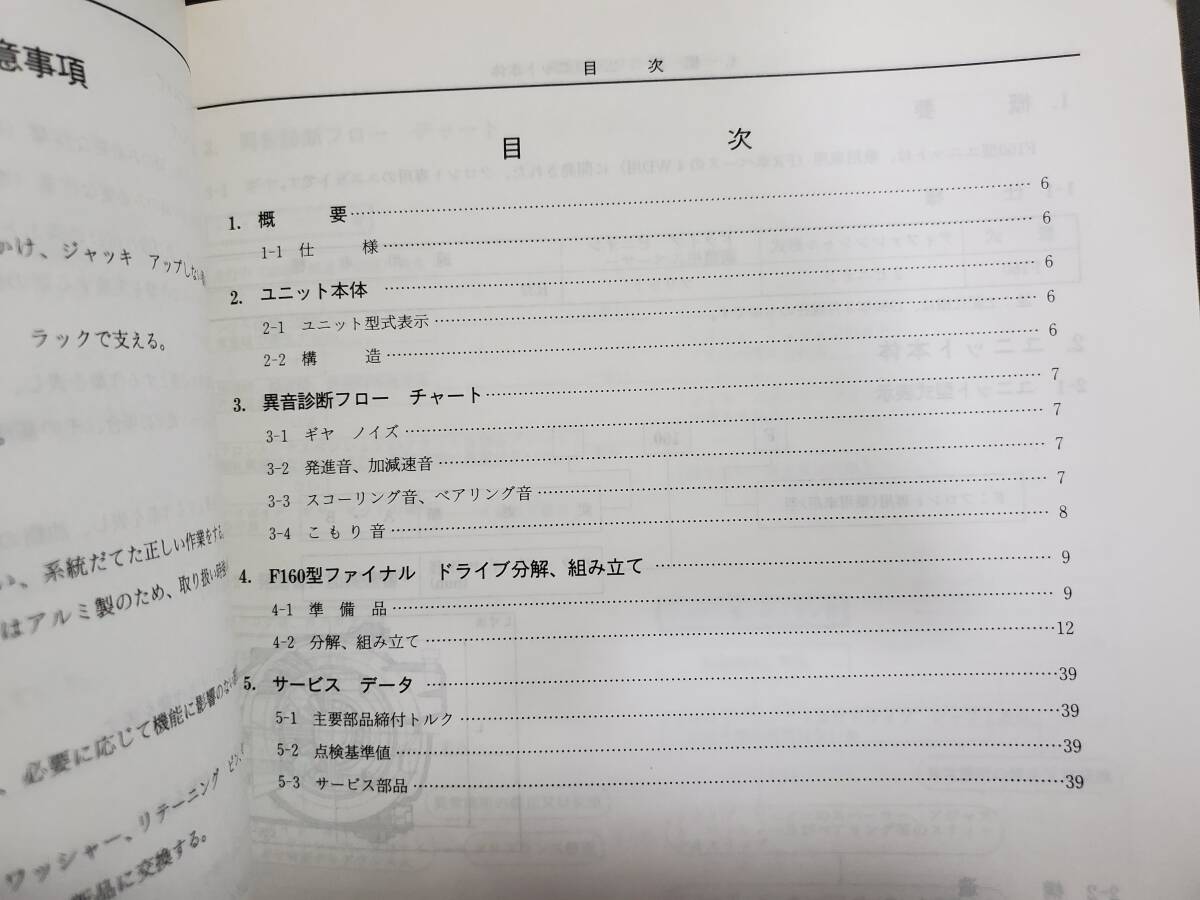 意事項
かけ、ジャッキ アップしない
ラックで支える。
い、系統だてた正しい作業をする
はアルミ製のため、取り扱い時
、必要に応じて機能に影響のない
ワッシャー、リテーニング ピン、
新品に交換する。
目 次
目 次
1. 概 要 6
1-1 仕 様 6
2. ユニット本体 6
2-1 ユニット型式表示 6
2-2 構 造 6
3. 異音診断フロー チャート 7
3-1 ギヤ ノイズ 7
3-2 発進音、加減速音 7
3-3 スコーリング音、ベアリング音 7
3-4 こもり音 8
4. F160型ファイナル ドライブ分解、組み立て 9
4-1 準備品 9
4-2 分解、組み立て 12
5. サービス データ 39
5-1 主要部品締付トルク 39
5-2 点検基準値 39
5-3 サービス部品 39